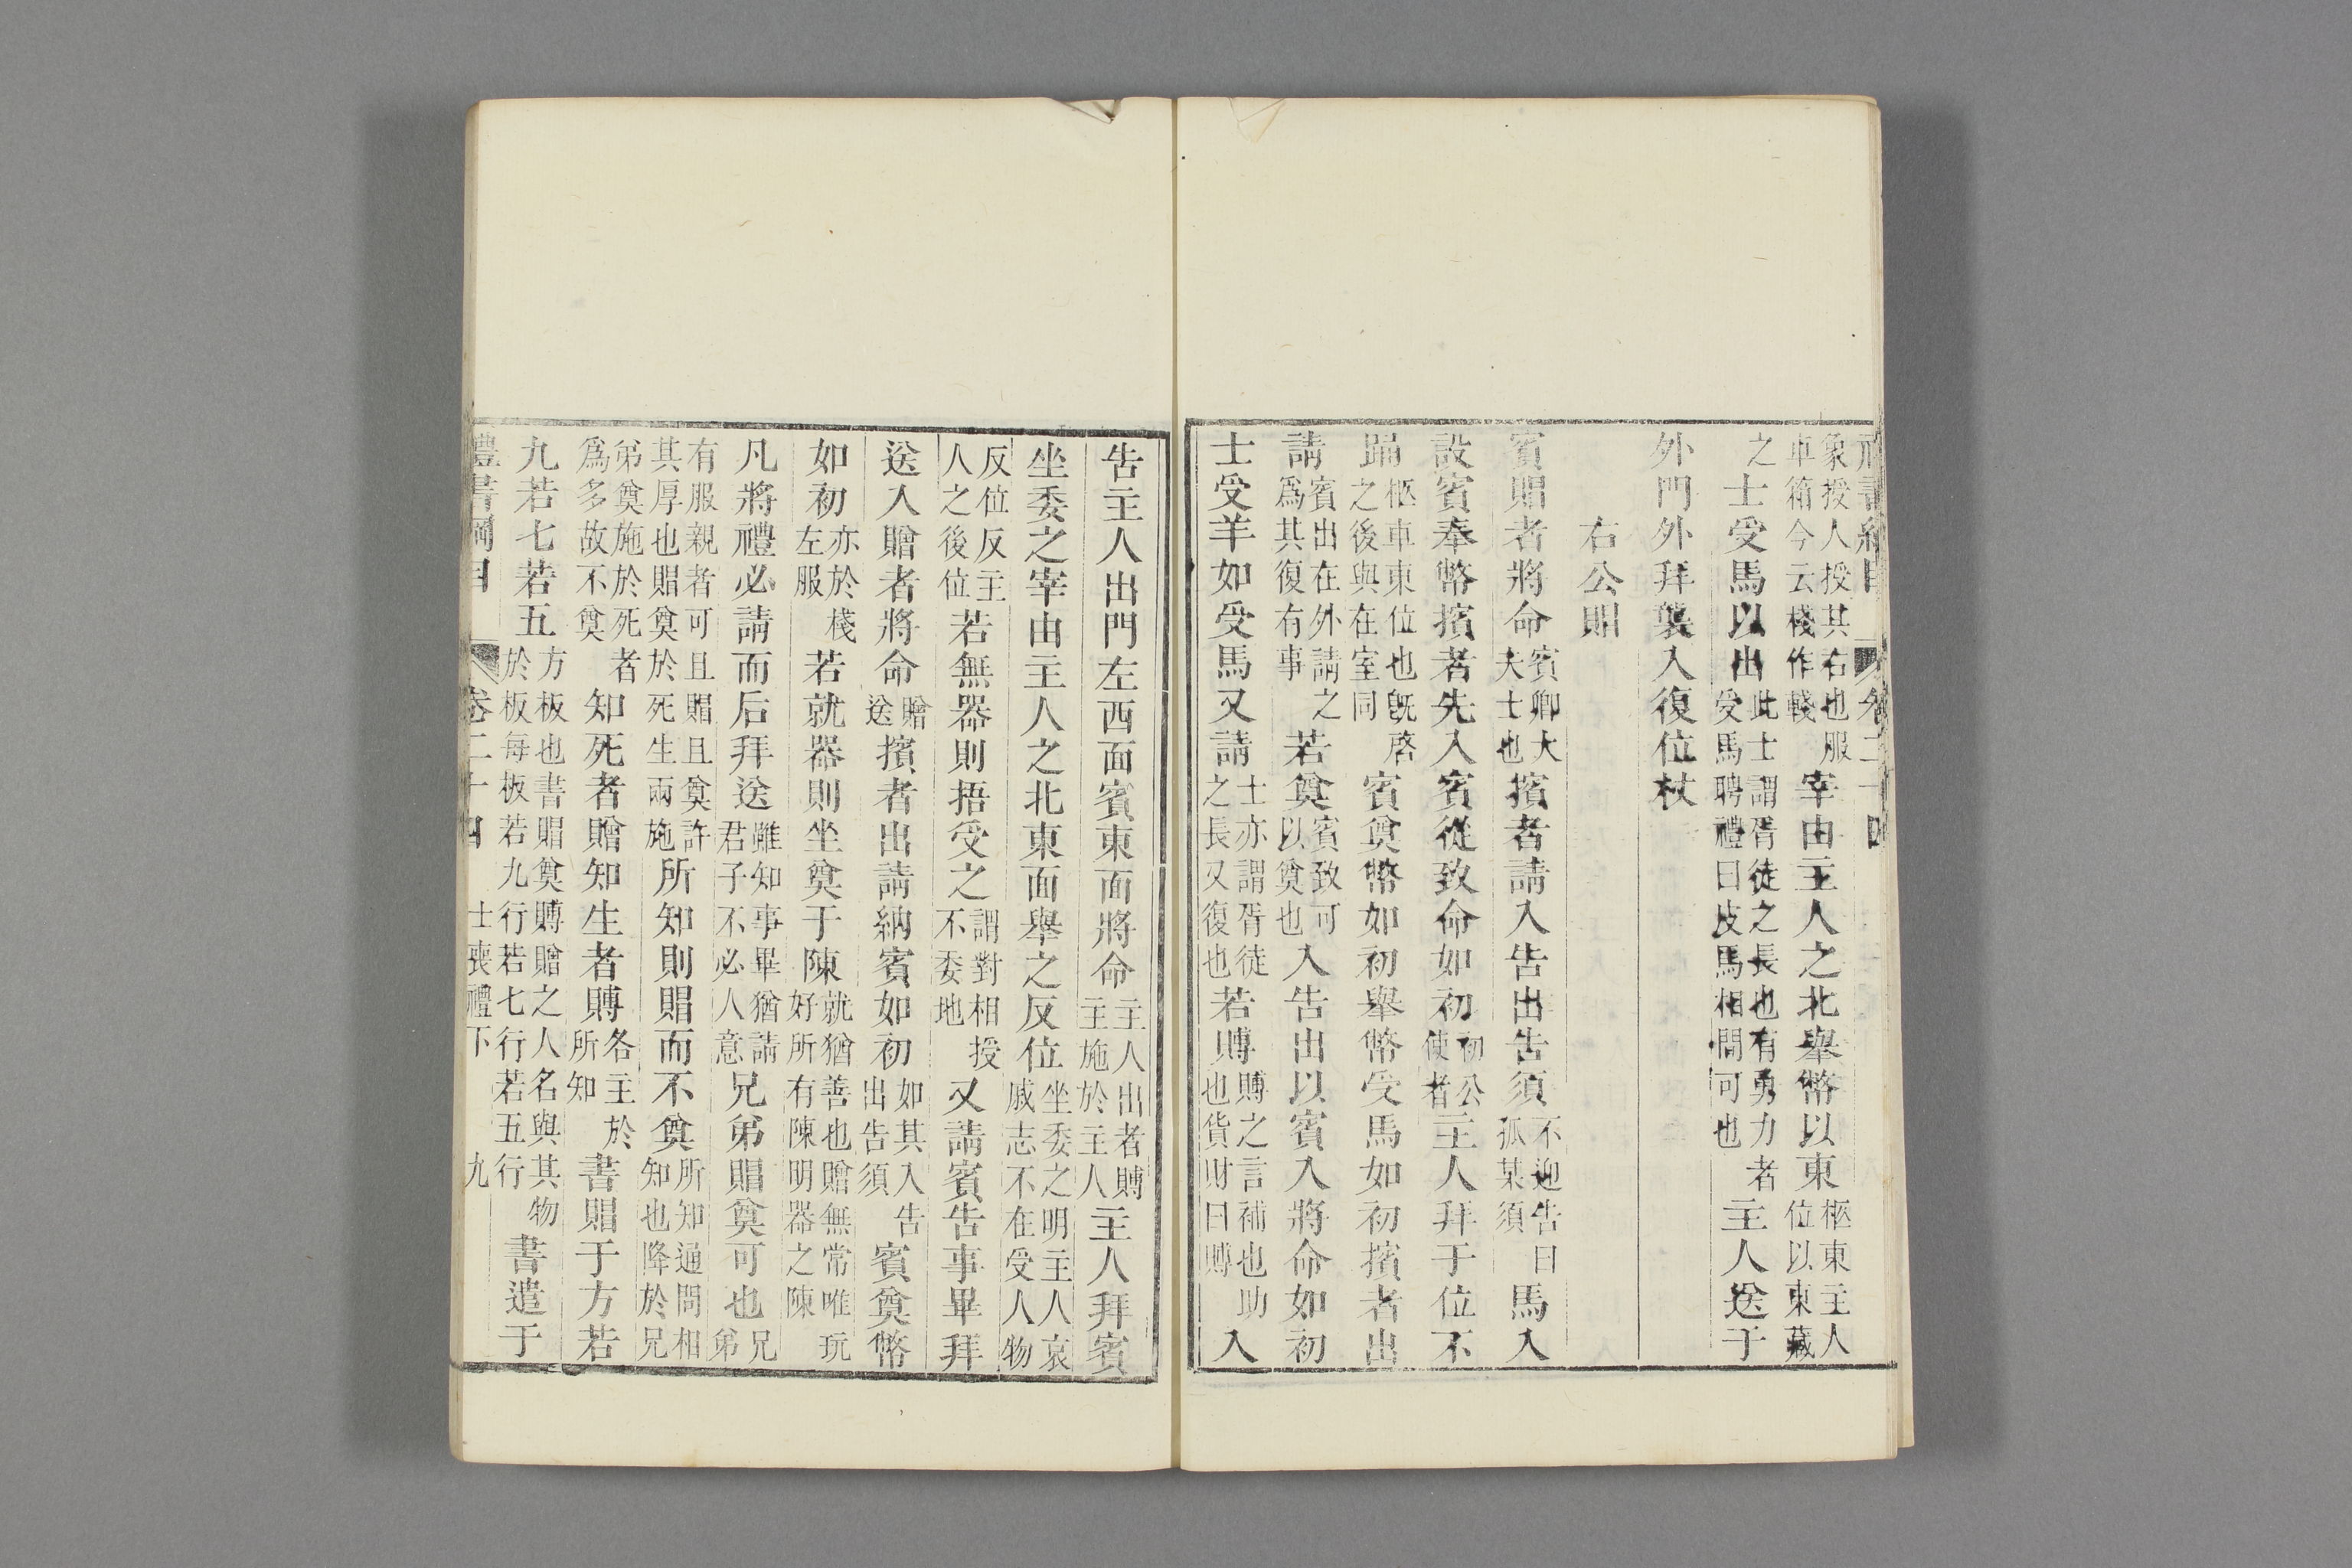 禮書綱目 卷二十四
象授人授其右也服車箱今云棧作輚宰由主人之北舉幣以東柩東主人位以東藏
之士受馬以出此士謂胥徒之長也有勇力者受馬聘禮曰皮馬相間可也主人送于
外門外拜襲入復位杖
右公賵
賓賵者將命賓卿大夫士也擯者請入告出告須不迎告曰孤某須馬入
設賓奉幣擯者先入賓從致命如初初公使者主人拜于位不
踊柩車東位也旣啓之後與在室同賓奠幣如初舉幣受馬如初擯者出
請賓出在外請之爲其復有事若奠賓致可以奠也入告出以賓入將命如初
士受羊如受馬又請士亦謂胥徒之長又復也若賻賻之言補也助也貨財曰賻入
告主人出門左西面賓東面將命主人出者賻主施於主人主人拜賓
坐委之宰由主人之北東面舉之反位坐委之明主人哀戚志不在受人物
反位反主人之後位若無器則捂受之謂對相授不委地又請賓告事畢拜
送入贈者將命贈送擯者出請納賓如初如其入告出告須賓奠幣
如初亦於棧左服若就器則坐奠于陳就猶善也贈無常唯玩好所有陳明器之陳
凡將禮必請而后拜送雖知事畢猶請君子不必人意兄弟賵奠可也兄弟
有服親者可且賵且奠許其厚也賵奠於死生兩施所知則賵而不奠所知通問相知也降於兄
弟奠施於死者爲多故不奠知死者贈知生者賻各主於所知書賵于方若
九若七若五方板也書賵奠賻贈之人名與其物於板每板若九行若七行若五行書遣于
禮書綱目 卷二十四 士喪禮下 九